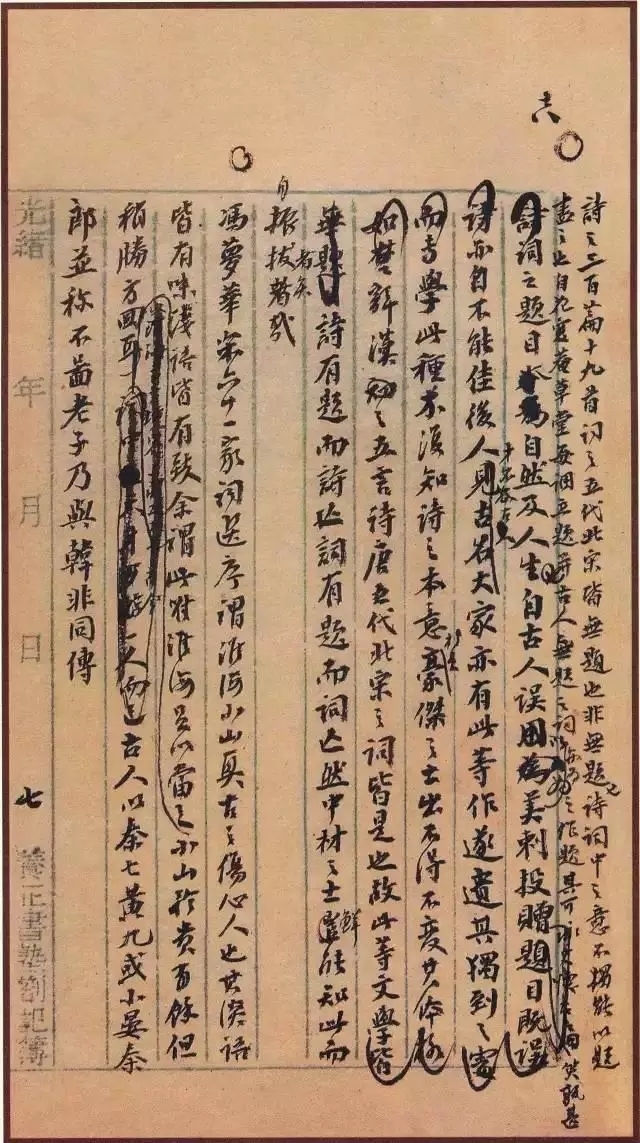 詩之三百篇十九首詞之五代北宋皆無題也非無題也詩詞中之意不獨能以題
盡之也自花庵草堂每調立題并古人無題之詞亦為之作題其可
詩詞之題目本為自然及人生自古人誤用為美刺投贈題目既誤
詩亦自不能佳後人才不及古人見古名大家亦有此等作遂遺其獨到之處
而專學此種不復知詩之本意於是豪傑之士出不得不變其体格
如楚辭漢之五言詩唐五代北宋之詞皆是也故此等文學皆
無題詩有題而詩亡詞有題而詞亡然中材之士鮮能知此而
自振拔者矣
馮夢華宋六十一家詞選序謂淮海小山真古之傷心人也其淡語
皆有味淺語皆有致余謂此唯淮海足以當之小山矜貴有餘但
稍勝方回耳古人以秦七黃九或小晏秦
郎並称不啚老子乃與韓非同傳
光緒 年 月 日 七 養正書塾劄記簿